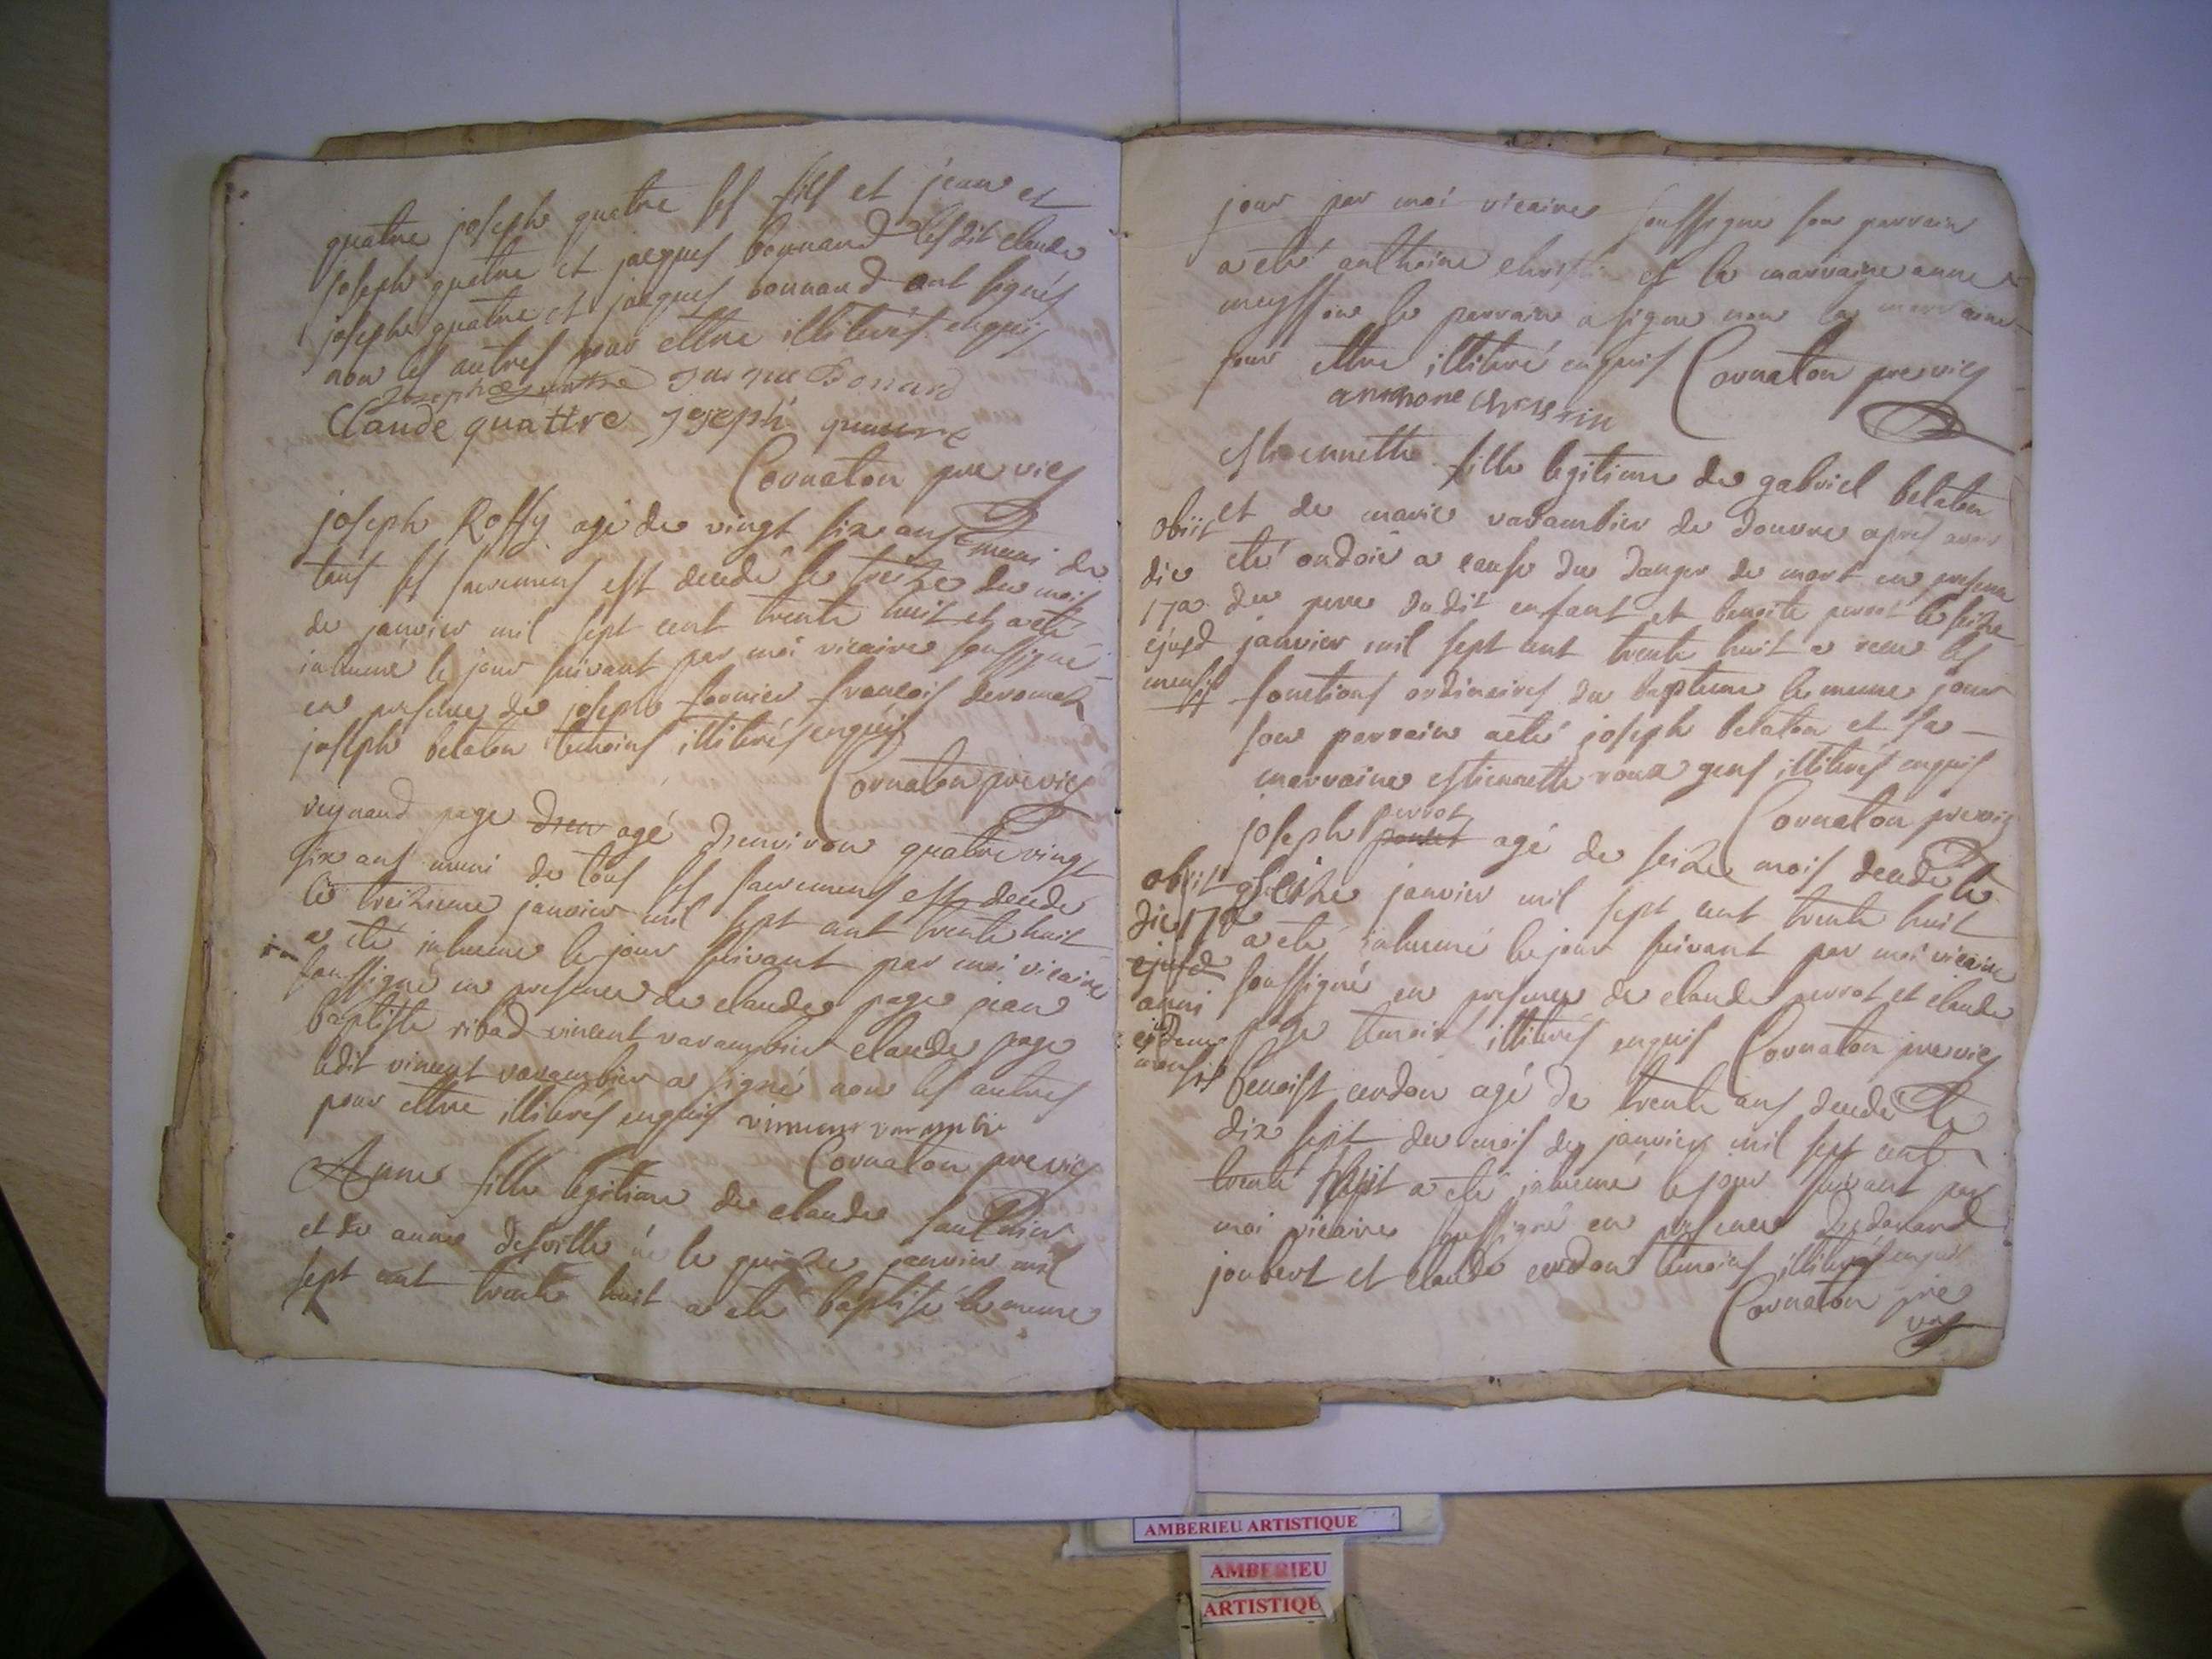 quatre joseph quatre ses fils et jean et
joseph quatre et jacques bonnard lesdit claude
joseph quatre et jacques bonnard ont signés
non les autres pour ettre illiterés enquis
Joseph quattre Jacque Bonard
Claude quattre Joseph quattre
Cornaton pre vic
joseph Roffy agé de vingt six ans muni de
tous ses sacremens est decedé le treize du mois
de janvier mil sept cent trente huit et a eté
inhumé le jour suivant par moi vicaire soussigné
en presence de joseph fornier francois
joseph belaton temoins illiterés enquis
Cornaton pre vic
reynaud page agé denviron quatre vingt
six ans muni de tous ses sacremens est decedé
le treizieme janvier mil sept cent trente huit
a eté inhumé le jour suivant par moi vicaire
soussigné en presence de claude page jean
baptiste ribad vincent varambier claude page
ledit vincent varambier a signé non les autres
pour ettre illiterés enquis
Cornaton pre vic
Anne fille legitime de claude
et de anne né le quinze janvier mil
sept cent trente huit a eté baptisé le meme
jour par moi vicaire soussigné son parrain
a eté anthoine et la marraine anne
le parrain a signé non la marraine
pour ettre illiteré enquis Cornaton pre vic
estiennette fille legitime de gabriel belaton
et de marie varambier de douvre apres avoir
eté ondoié a cause du danger de mort en presence
du pere dudit enfant et benoite perrot le seize
janvier mil sept cent trente huit a receu les
fonctions ordinaires du bapteme le meme jour
son parrain a eté joseph belaton et sa
marraine estiennette roux gens illiterés enquis
Cornaton pre vic
obiit
die
17a
ejusd
mensis
perrot
joseph agé de seize mois decedé le
seize janvier mil sept cent trente huit
a eté inhumé le jour suivant par moi vicaire
soussigné en presence de claude perrot et claude
page temoins illiterés enquis Cornaton pre vic
obiit
die 17a
ejusd
anni
ejusdem
mensis
benoist cerdon agé de trente ans decedé le
dix sept du mois de janvier mil sept cent
trente huit a eté inhumé le jour suivant par
moi vicaire soussigné en presence
joubert et claude cerdon temoins illiterés enquis
Cornaton pre
vic
AMBERIEU ARTISTIQUE
AMBERIEU
ARTISTIQUE